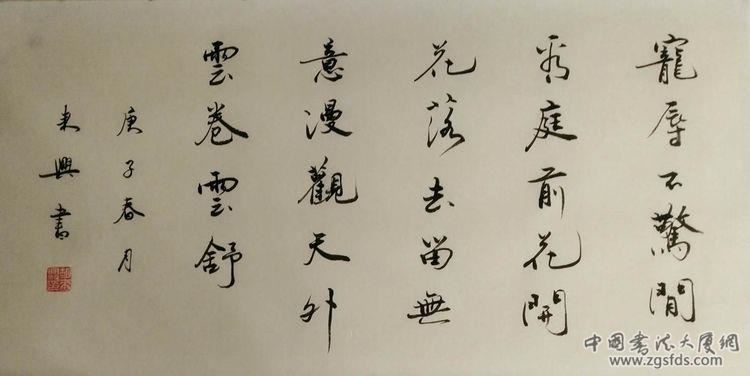 寵辱不驚閒
看庭前花開
花落去留無
意漫觀天外
雲卷雲舒
庚子春月
東興書
中国书法大厦網
www.zgsfds.com